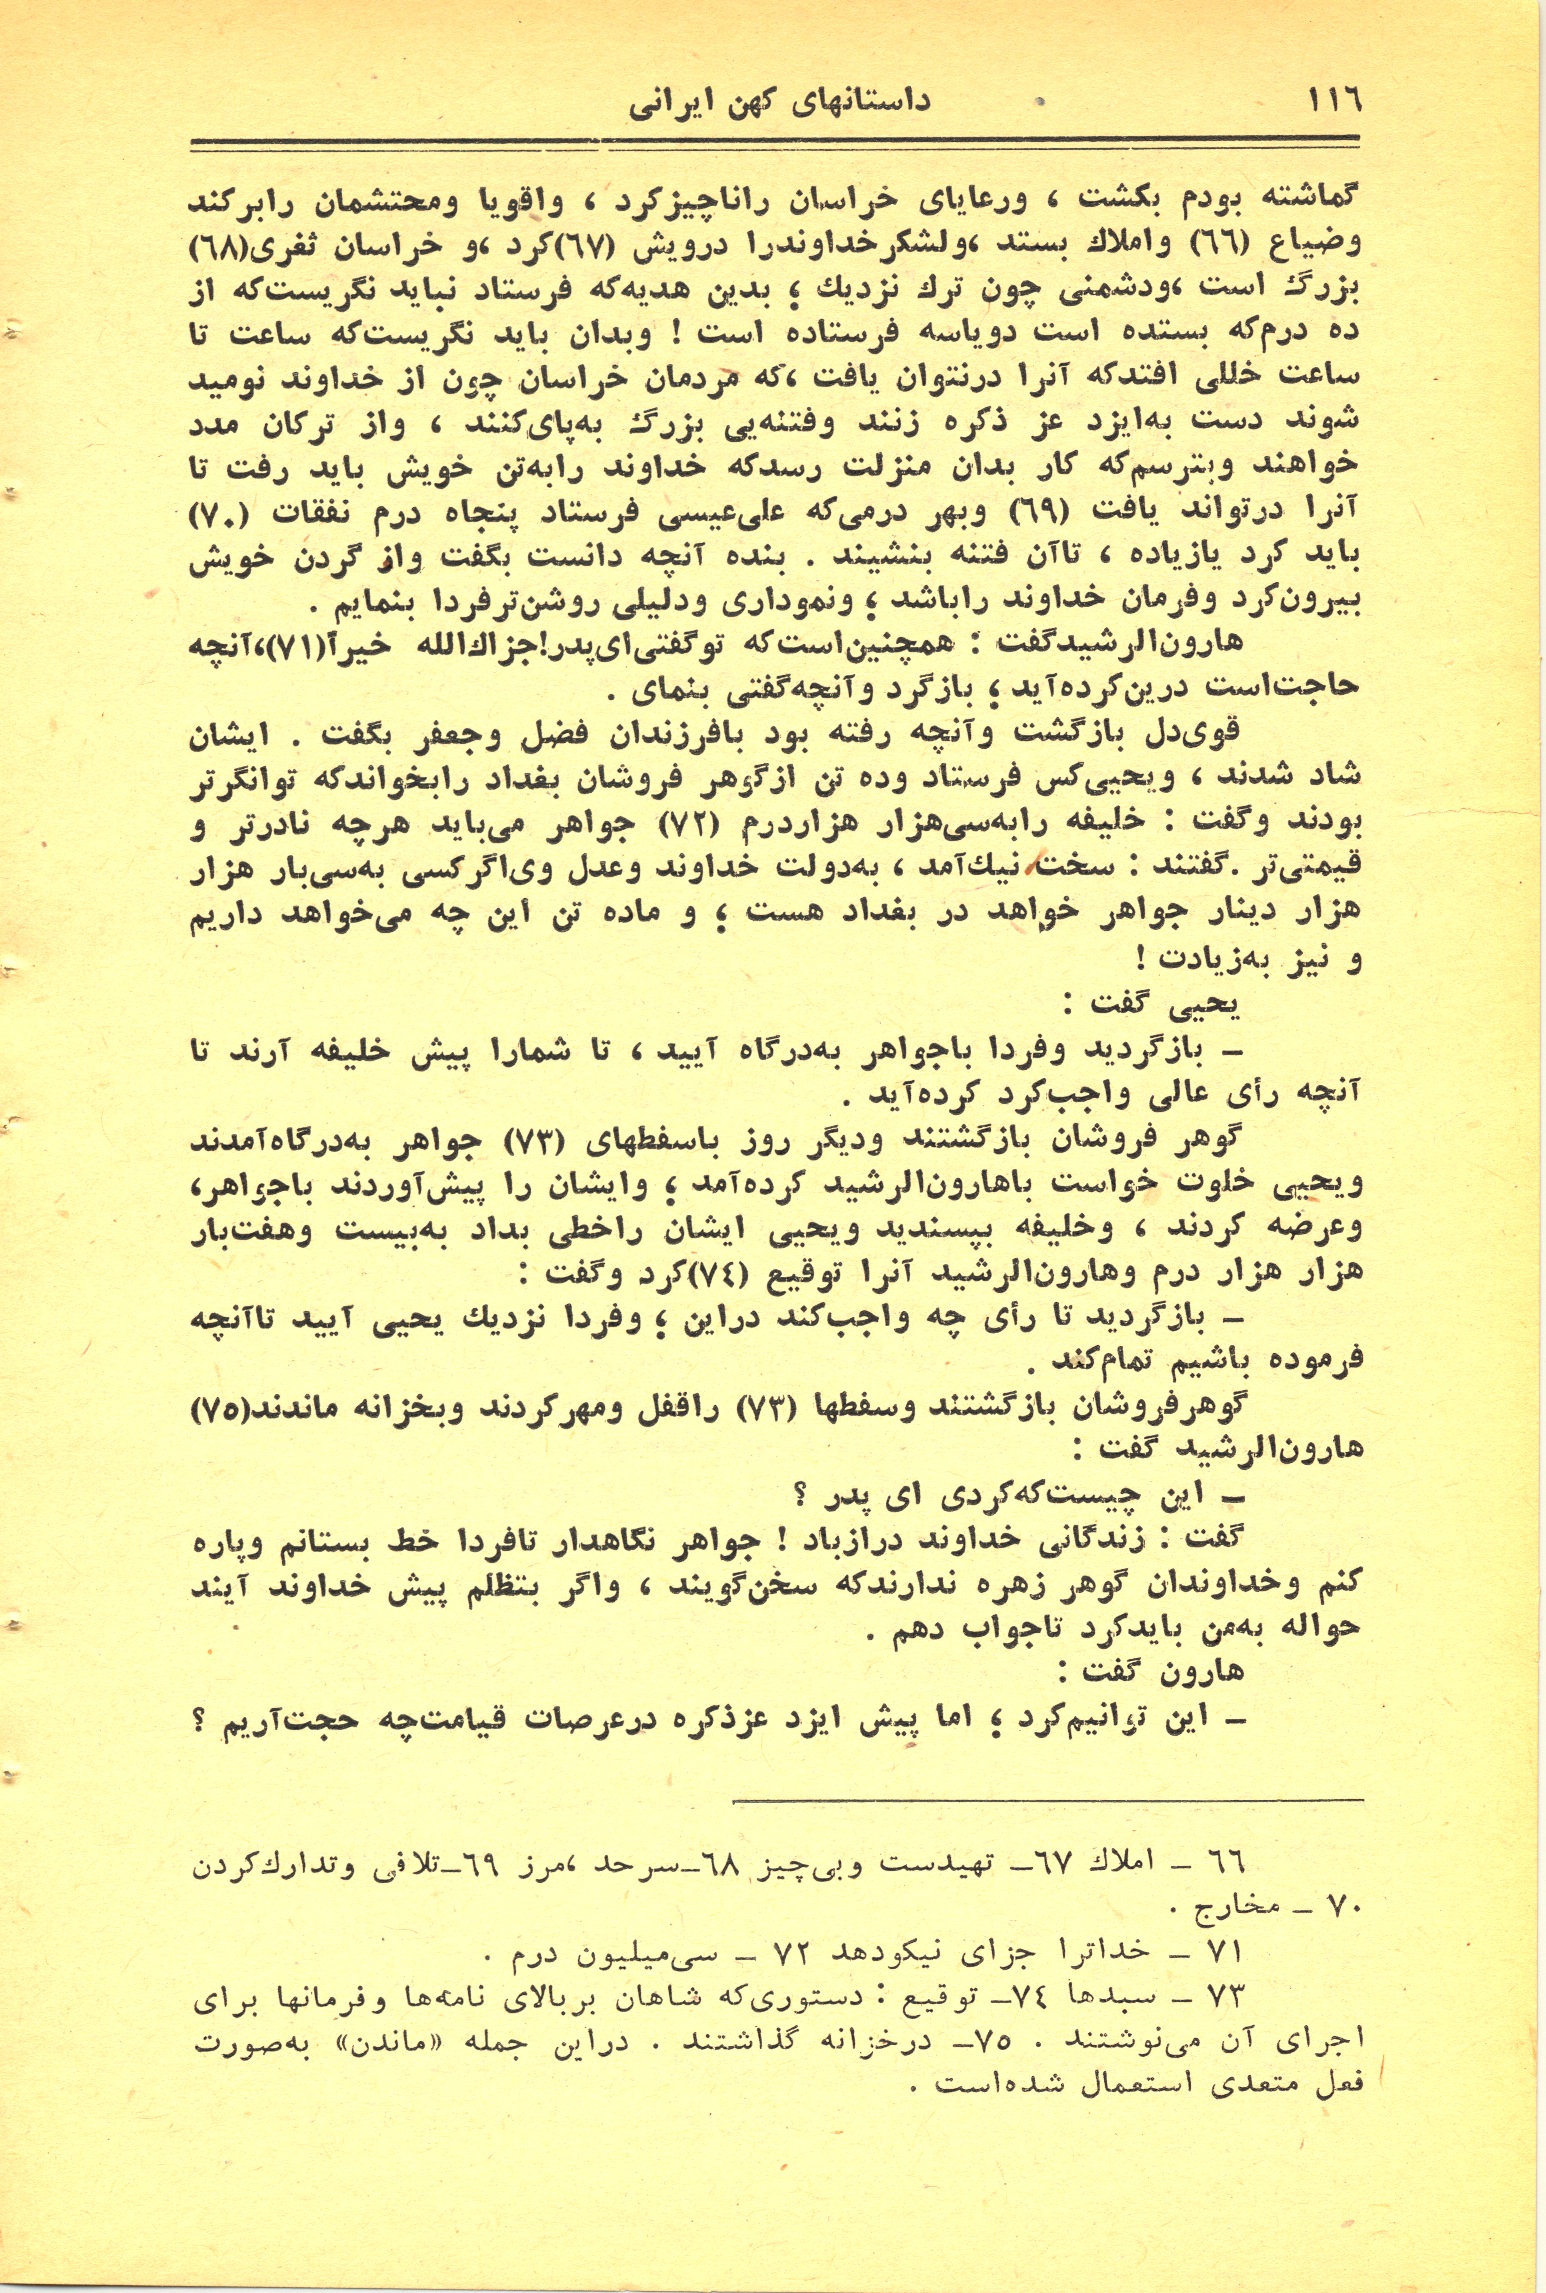 ١١٦ داستانهای کهن ایرانی
گماشته بودم بکشت ، ورعایای خراسان راناچیزکرد ، واقویا ومحتشمان رابرکند
وضیاع (٦٦) واملاك بستد ،ولشکرخداوندرا درویش (٦٧)کرد ،و خراسان ثغری(٦٨)
بزرگ است ،ودشمنی چون ترك نزدیك ؛ بدین هدیه‌که فرستاد نباید نگریست‌که از
ده درم‌که بستده است دویاسه فرستاده است ! وبدان باید نگریست‌که ساعت تا
ساعت خللی افتدکه آنرا درنتوان یافت ،که مردمان خراسان چون از خداوند نومید
شوند دست به‌ایزد عز ذکره زنند وفتنه‌یی بزرگ به‌پای‌کنند ، واز ترکان مدد
خواهند وبترسم‌که کار بدان منزلت رسدکه خداوند رابه‌تن خویش باید رفت تا
آنرا درتواند یافت (٦٩) وبهر درمی‌که علی‌عیسی فرستاد پنجاه درم نفقات (٧٠)
باید کرد یازیاده ، تاآن فتنه بنشیند . بنده آنچه دانست بگفت واز گردن خویش
بیرون‌کرد وفرمان خداوند راباشد ؛ ونموداری ودلیلی روشن‌ترفردا بنمایم .
هارون‌الرشیدگفت : همچنین‌است‌که توگفتی‌ای‌پدر!جزاك‌الله خیرآ(٧١)،آنچه
حاجت‌است درین‌کرده‌آید ؛ بازگرد وآنچه‌گفتی بنمای .
قوی‌دل بازگشت وآنچه رفته بود بافرزندان فضل وجعفر بگفت . ایشان
شاد شدند ، ویحیی‌کس فرستاد وده تن ازگوهر فروشان بغداد رابخواندکه توانگرتر
بودند وگفت : خلیفه رابه‌سی‌هزار هزاردرم (٧٢) جواهر می‌باید هرچه نادرتر و
قیمتی‌تر .گفتند : سخت نیك‌آمد ، به‌دولت خداوند وعدل وی‌اگرکسی به‌سی‌بار هزار
هزار دینار جواهر خواهد در بغداد هست ؛ و ماده تن این چه می‌خواهد داریم
و نیز به‌زیادت !
یحیی گفت :
– بازگردید وفردا باجواهر به‌درگاه آیید ، تا شمارا پیش خلیفه آرند تا
آنچه رأی عالی واجب‌کرد کرده‌آید .
گوهر فروشان بازگشتند ودیگر روز باسفطهای (٧٣) جواهر به‌درگاه‌آمدند
ویحیی خلوت خواست باهارون‌الرشید کرده‌آمد ؛ وایشان را پیش‌آوردند باجواهر،
وعرضه کردند ، وخلیفه بپسندید ویحیی ایشان راخطی بداد به‌بیست وهفت‌بار
هزار هزار درم وهارون‌الرشید آنرا توقیع (٧٤)کرد وگفت :
– بازگردید تا رأی چه واجب‌کند دراین ؛ وفردا نزدیك یحیی آیید تاآنچه
فرموده باشیم تمام‌کند .
گوهرفروشان بازگشتند وسفطها (٧٣) راقفل ومهرکردند وبخزانه ماندند(٧٥)
هارون‌الرشید گفت :
– این چیست‌که‌کردی ای پدر ؟
گفت : زندگانی خداوند درازباد ! جواهر نگاهدار تافردا خط بستانم وپاره
کنم وخداوندان گوهر زهره ندارندکه سخن‌گویند ، واگر بتظلم پیش خداوند آیند
حواله به‌من بایدکرد تاجواب دهم .
هارون گفت :
– این توانیم‌کرد ؛ اما پیش ایزد عزذکره درعرصات قیامت‌چه حجت‌آریم ؟
٦٦ – املاك ٦٧– تهیدست وبی‌چیز ٦٨–سرحد ،مرز ٦٩–تلافی وتدارك‌کردن
٧٠ – مخارج .
٧١ – خداترا جزای نیکودهد ٧٢ – سی‌میلیون درم .
٧٣ – سبدها ٧٤– توقیع : دستوری‌که شاهان بربالای نامه‌ها وفرمانها برای
اجرای آن می‌نوشتند . ٧٥– درخزانه گذاشتند . دراین جمله «ماندن» به‌صورت
فعل متعدی استعمال شده‌است .